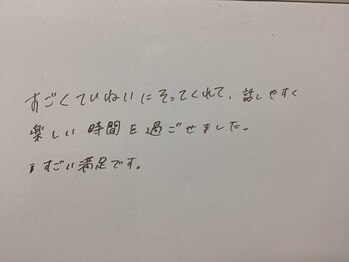 すごくていねいにそってくれて、話しやすく
楽しい時間を過ごせました。
すごい満足です。